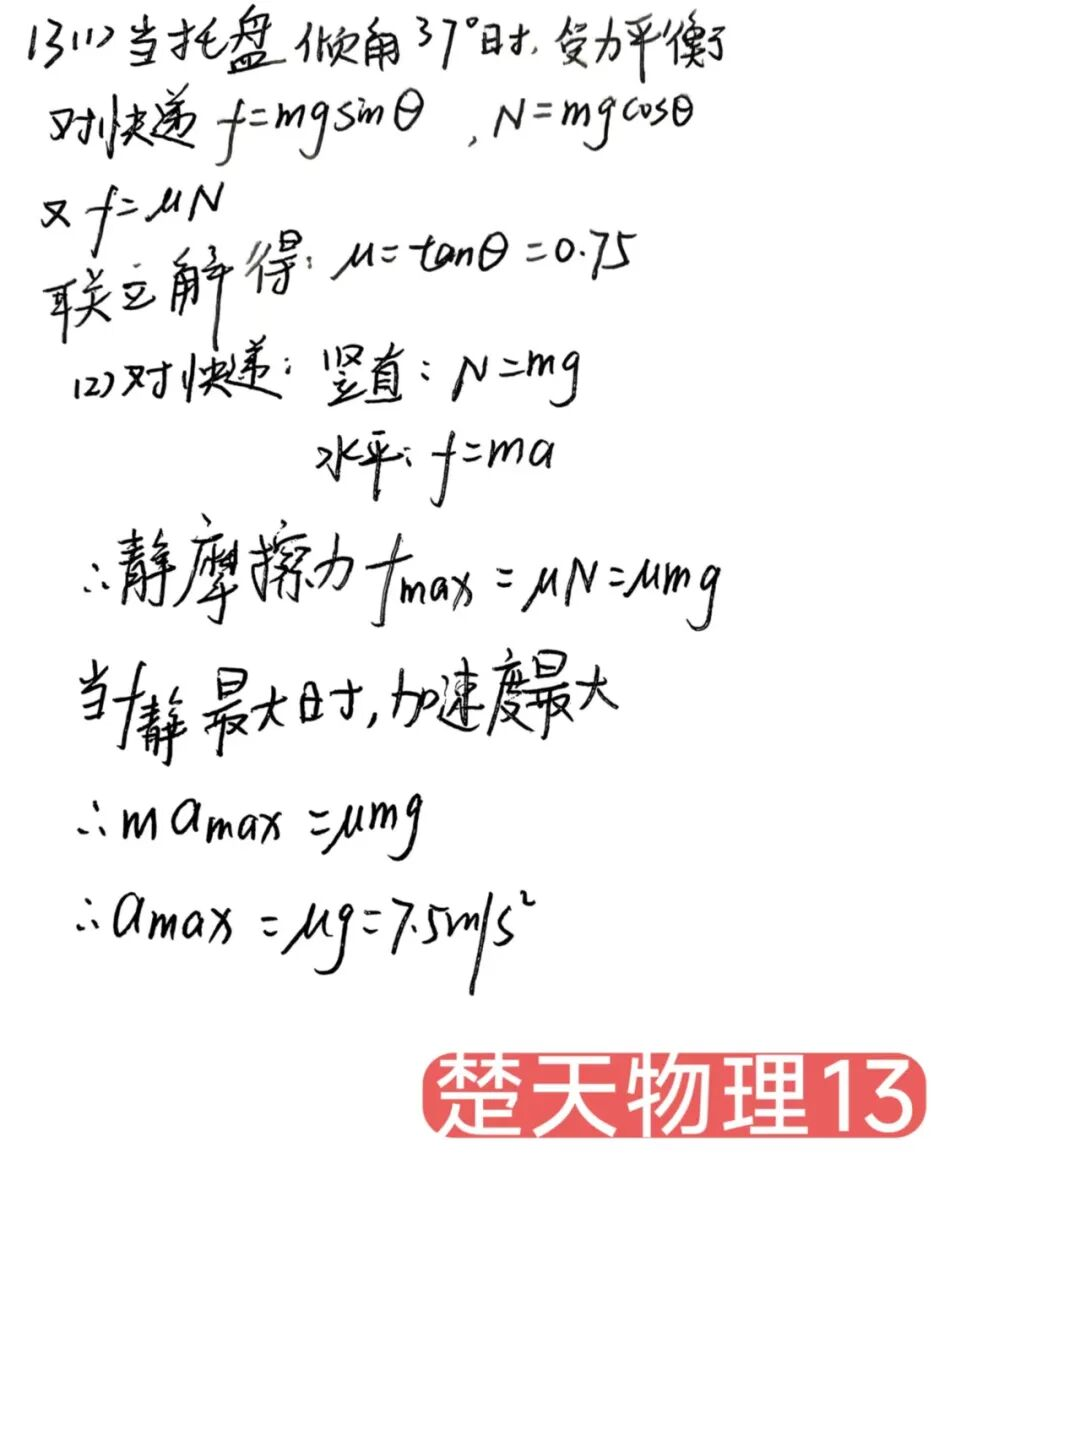 13(1)当托盘倾角37°时,受力平衡
对快递 f=mgsinθ , N=mgcosθ
又 f=μN
联立解得: μ=tanθ=0.75
(2)对快递: 竖直: N=mg
水平: f=ma
∴静摩擦力fmax=μN=μmg
当f静最大时,加速度最大
∴mamax=μmg
∴amax=μg=7.5m/s²
楚天物理13